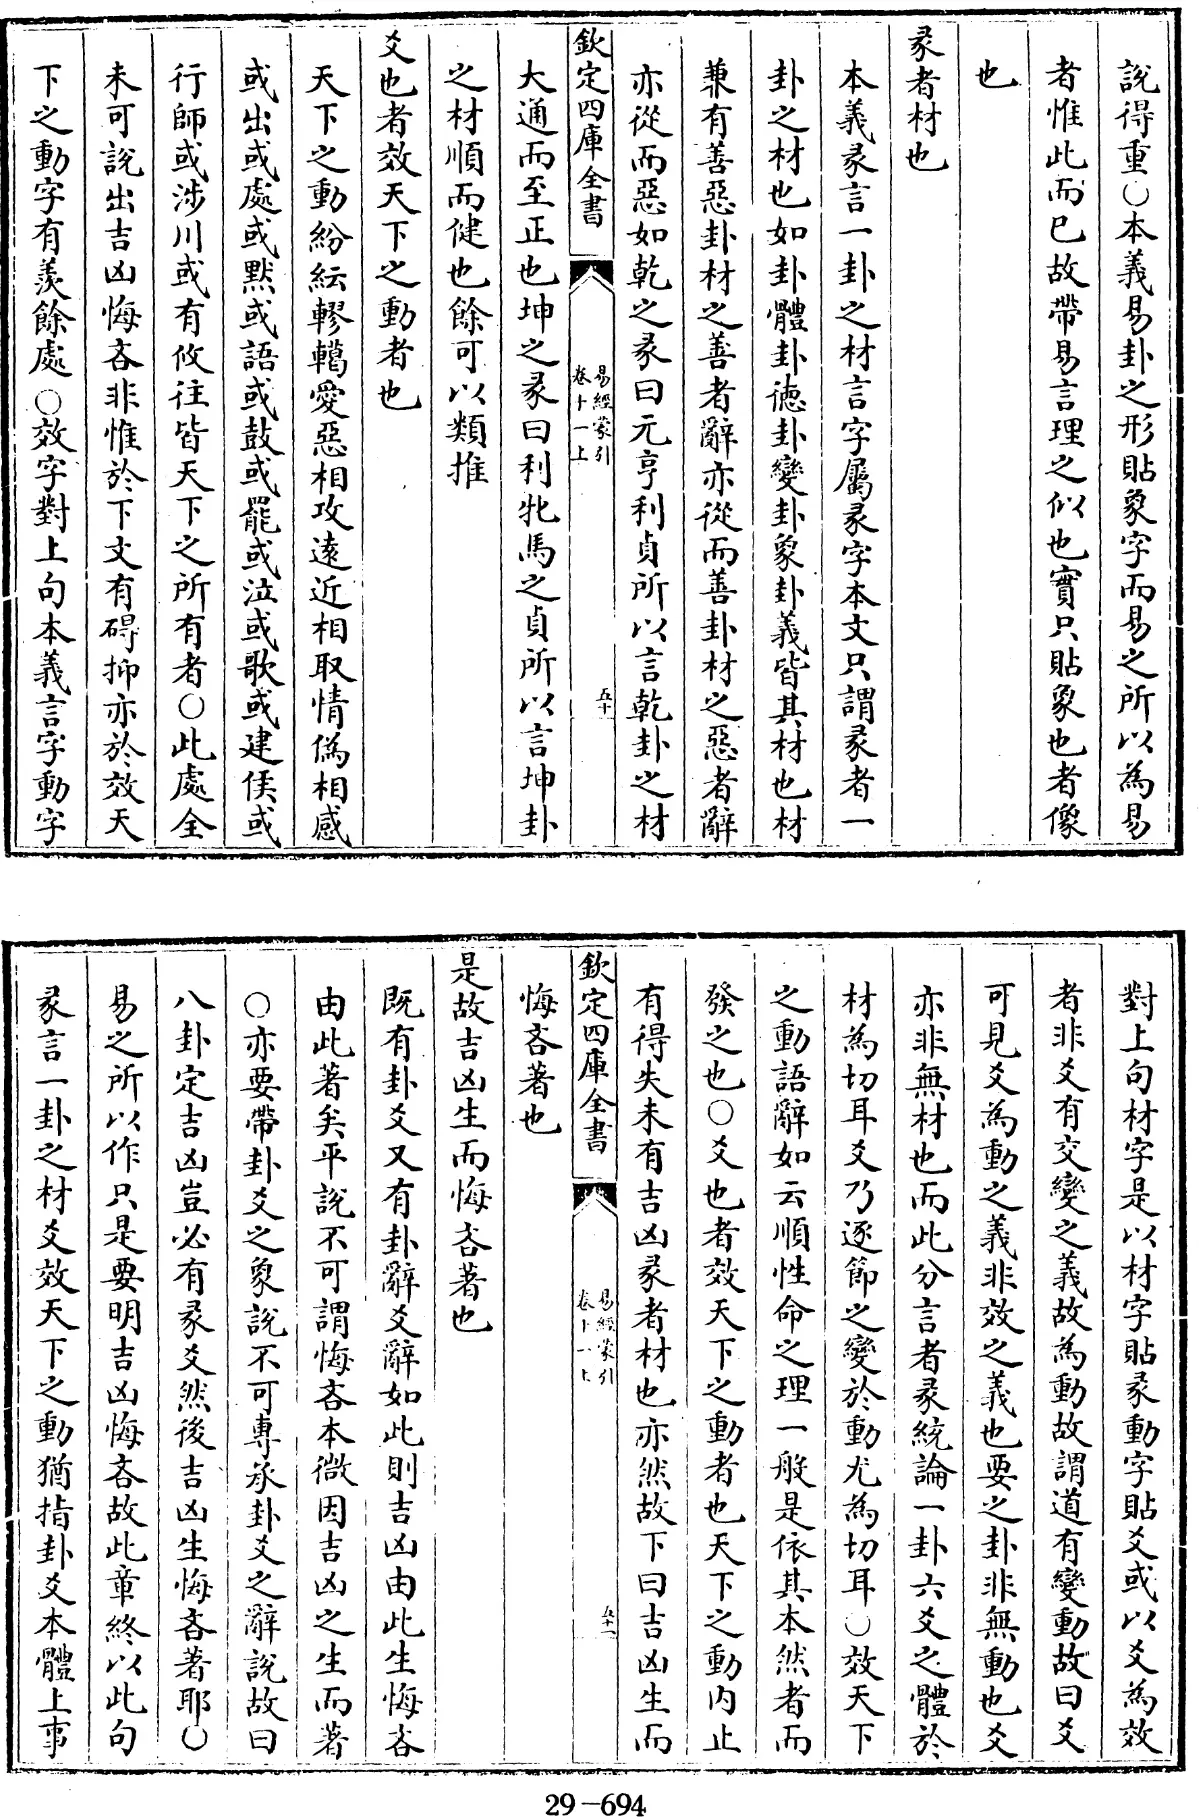 說得重○本義易卦之形貼象字而易之所以為易
者惟此而已故帶易言理之似也實只貼象也者像
也
彖者材也
本義彖言一卦之材言字屬彖字本文只謂彖者一
卦之材也如卦體卦德卦變卦象卦義皆其材也材
兼有善惡卦材之善者辭亦從而善卦材之惡者辭
亦從而惡如乾之彖曰元亨利貞所以言乾卦之材
欽定四庫全書
易經蒙引
卷十一上
五十
大通而至正也坤之彖曰利牝馬之貞所以言坤卦
之材順而健也餘可以類推
爻也者效天下之動者也
天下之動紛紜轇轕愛惡相攻遠近相取情偽相感
或出或處或默或語或鼓或罷或泣或歌或建侯或
行師或涉川或有攸往皆天下之所有者○此處全
未可說出吉凶悔吝非惟於下文有碍抑亦於效天
下之動字有羨餘處○效字對上句本義言字動字
對上句材字是以材字貼彖動字貼爻或以爻為效
者非爻有交變之義故為動故謂道有變動故曰爻
可見爻為動之義非效之義也要之卦非無動也爻
亦非無材也而此分言者彖統論一卦六爻之體於
材為切耳爻乃逐節之變於動尤為切耳○效天下
之動語辭如云順性命之理一般是依其本然者而
發之也○爻也者效天下之動者也天下之動內止
有得失未有吉凶彖者材也亦然故下曰吉凶生而
欽定四庫全書
易經蒙引
卷十一上
五十一
悔吝著也
是故吉凶生而悔吝著也
既有卦爻又有卦辭爻辭如此則吉凶由此生悔吝
由此著矣平說不可謂悔吝本微因吉凶之生而著
○亦要帶卦爻之象說不可專承卦爻之辭說故曰
八卦定吉凶豈必有彖爻然後吉凶生悔吝著耶○
易之所以作只是要明吉凶悔吝故此章終以此句
彖言一卦之材爻效天下之動猶指卦爻本體上事
29-694